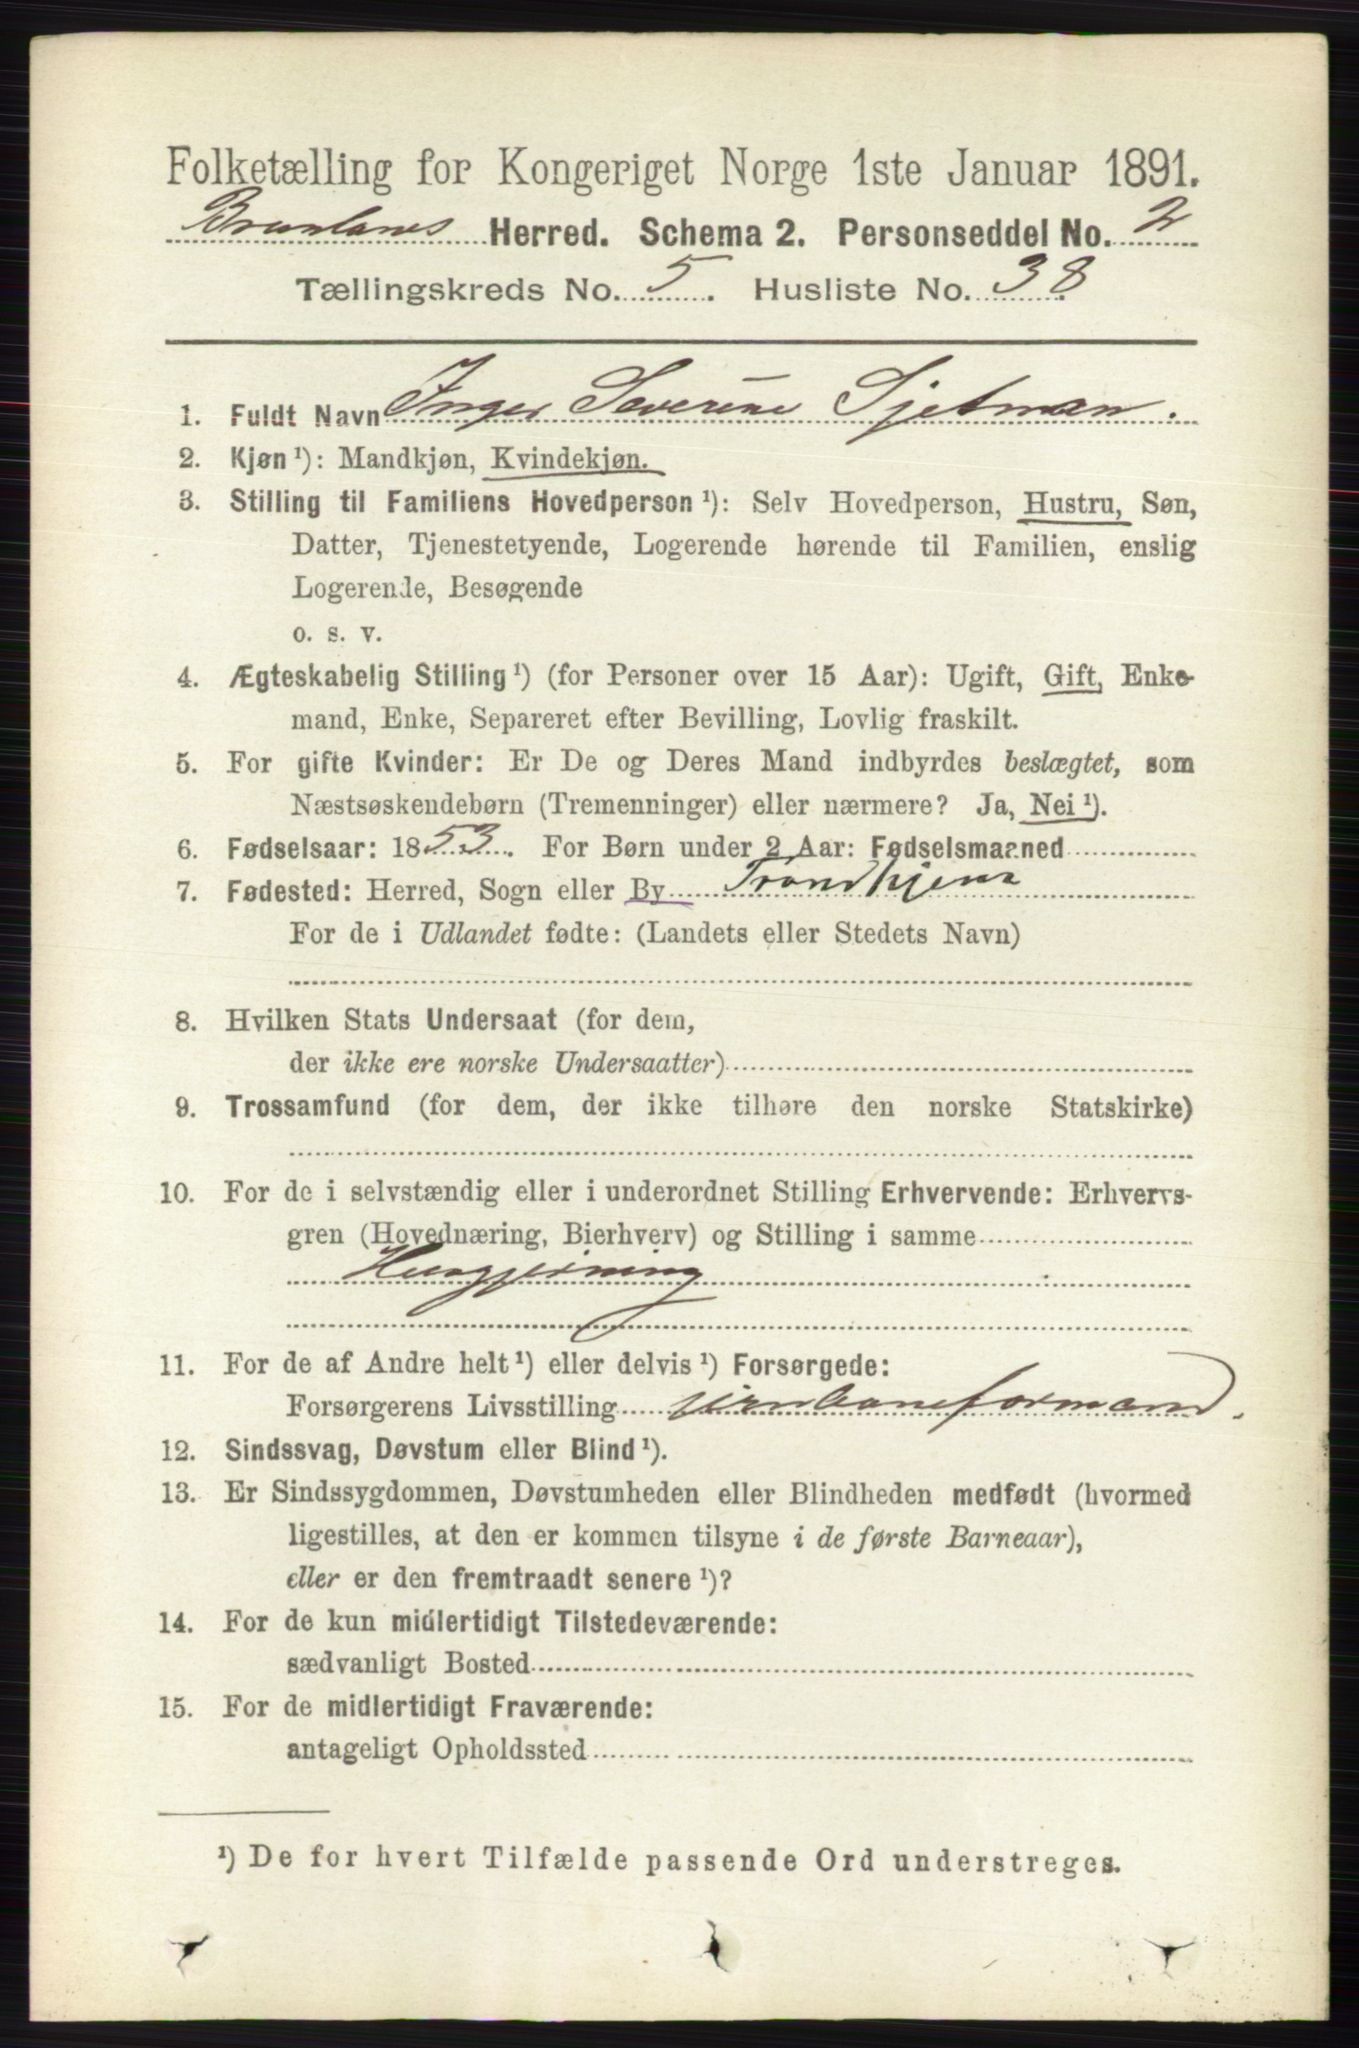 Folketælling for Kongeriget Norge 1ste Januar 1891.
Brunlanes Herred. Schema 2. Personseddel No. 2
Tællingskreds No. 5. Husliste No. 38
1. Fuldt Navn Inger Severine Sjetman.
2. Kjøn ¹): Mandkjøn, Kvindekjøn.
3. Stilling til Familiens Hovedperson ¹): Selv Hovedperson, Hustru, Søn,
Datter, Tjenestetyende, Logerende hørende til Familien, enslig
Logerende, Besøgende
o. s. v.
4. Ægteskabelig Stilling ¹) (for Personer over 15 Aar): Ugift, Gift, Enke-
mand, Enke, Separeret efter Bevilling, Lovlig fraskilt.
5. For gifte Kvinder: Er De og Deres Mand indbyrdes beslægtet, som
Næstsøskendebørn (Tremenninger) eller nærmere? Ja, Nei ¹).
6. Fødselsaar: 1853. For Børn under 2 Aar: Fødselsmaaned
7. Fødested: Herred, Sogn eller By Trondhjem
For de i Udlandet fødte: (Landets eller Stedets Navn)
8. Hvilken Stats Undersaat (for dem,
der ikke ere norske Undersaatter)
9. Trossamfund (for dem, der ikke tilhøre den norske Statskirke)
10. For de i selvstændig eller i underordnet Stilling Erhvervende: Erhvervs-
gren (Hovednæring, Bierhverv) og Stilling i samme
Husgjerning
11. For de af Andre helt ¹) eller delvis ¹) Forsørgede:
Forsørgerens Livsstilling jernbaneformand.
12. Sindssvag, Døvstum eller Blind ¹).
13. Er Sindssygdommen, Døvstumheden eller Blindheden medfødt (hvormed
ligestilles, at den er kommen tilsyne i de første Barneaar),
eller er den fremtraadt senere ¹)?
14. For de kun midlertidigt Tilstedeværende:
sædvanligt Bosted
15. For de midlertidigt Fraværende:
antageligt Opholdssted
¹) De for hvert Tilfælde passende Ord understreges.